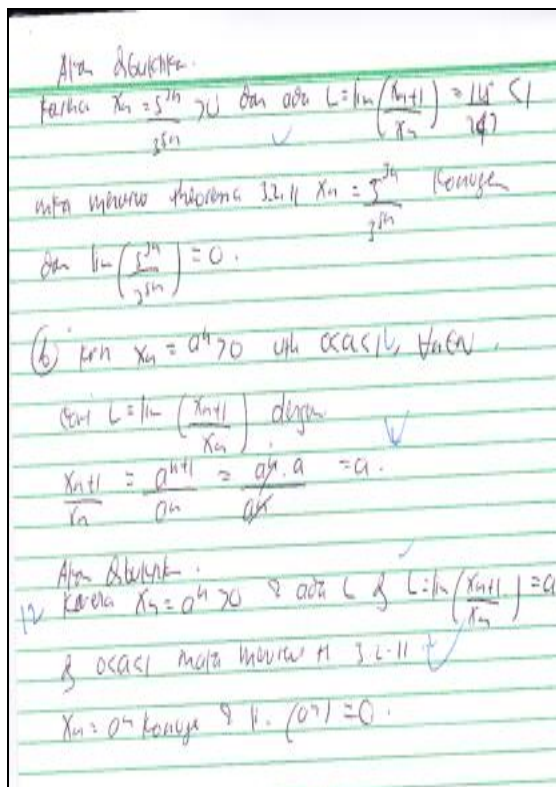 Akan dibuktikan.
Karena Xn = 5^3n / 3^5n > 0 dan ada L = lim (Xn+1 / Xn) = / 243 < 1
maka menurut theorema 3.2.11 Xn = 5^3n / 3^5n Konvgen
dan lim (5^3n / 3^5n) = 0.
(b) Xn = a^n > 0 utk 0<a<1, ∀n∈N.
Cari L = lim (Xn+1 / Xn) dengan
Xn+1 / Xn = a^n+1 / a^n = a^n . a / a^n = a.
Akan dibuktikan.
12 Karena Xn = a^n > 0 & ada L & L = lim (Xn+1 / Xn) = a
& 0<a<1 maka menurut 3.2.11
Xn = a^n Konvge & (a^n) = 0.